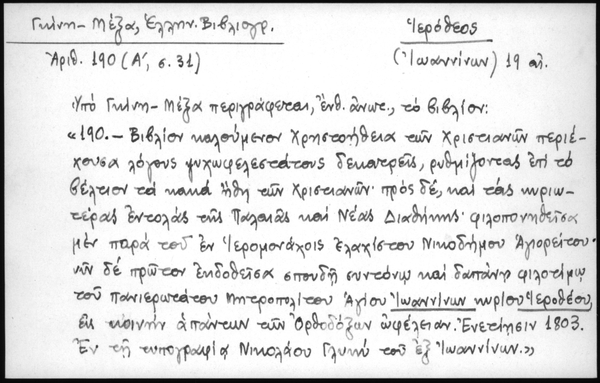 Γκίνη - Μέξα, Ἑλλην. Βιβλιογρ.
Ἱερόθεος
Ἀριθ. 190 (Α΄, σ. 31)
(Ἰωαννίνων) 19 αἰ.
Ὑπό Γκίνη - Μέξα περιγράφεται, ἔνθ. ἄνωτ., τό βιβλίον:
«190. — Βιβλίον καλούμενον Χρηστοήθεια τῶν Χριστιανῶν περιέ-
χουσα λόγους ψυχωφελεστάτους δεκατρεῖς, ρυθμίζοντας ἐπί τό
βέλτιον τά κακά ἤθη τῶν Χριστιανῶν· πρός δέ, καί τάς κυριω-
τέρας ἐντολάς τῆς Παλαιᾶς καί Νέας Διαθήκης· φιλοπονηθεῖσα
μέν παρά τοῦ ἐν Ἱερομονάχοις ἐλαχίστου Νικοδήμου Ἁγιορείτου·
νῦν δέ πρῶτον ἐκδοθεῖσα σπουδῇ συντόνῳ καί δαπάνῃ φιλοτίμῳ
τοῦ πανιερωτάτου Μητροπολίτου Ἁγίου Ἰωαννίνων κυρίου Ἱεροθέου,
εἰς κοινήν ἁπάντων τῶν Ὀρθοδόξων ὠφέλειαν. Ἐνετίησιν 1803.
Ἐν τῇ τυπογραφίᾳ Νικολάου Γλυκῆ τοῦ ἐξ Ἰωαννίνων.»